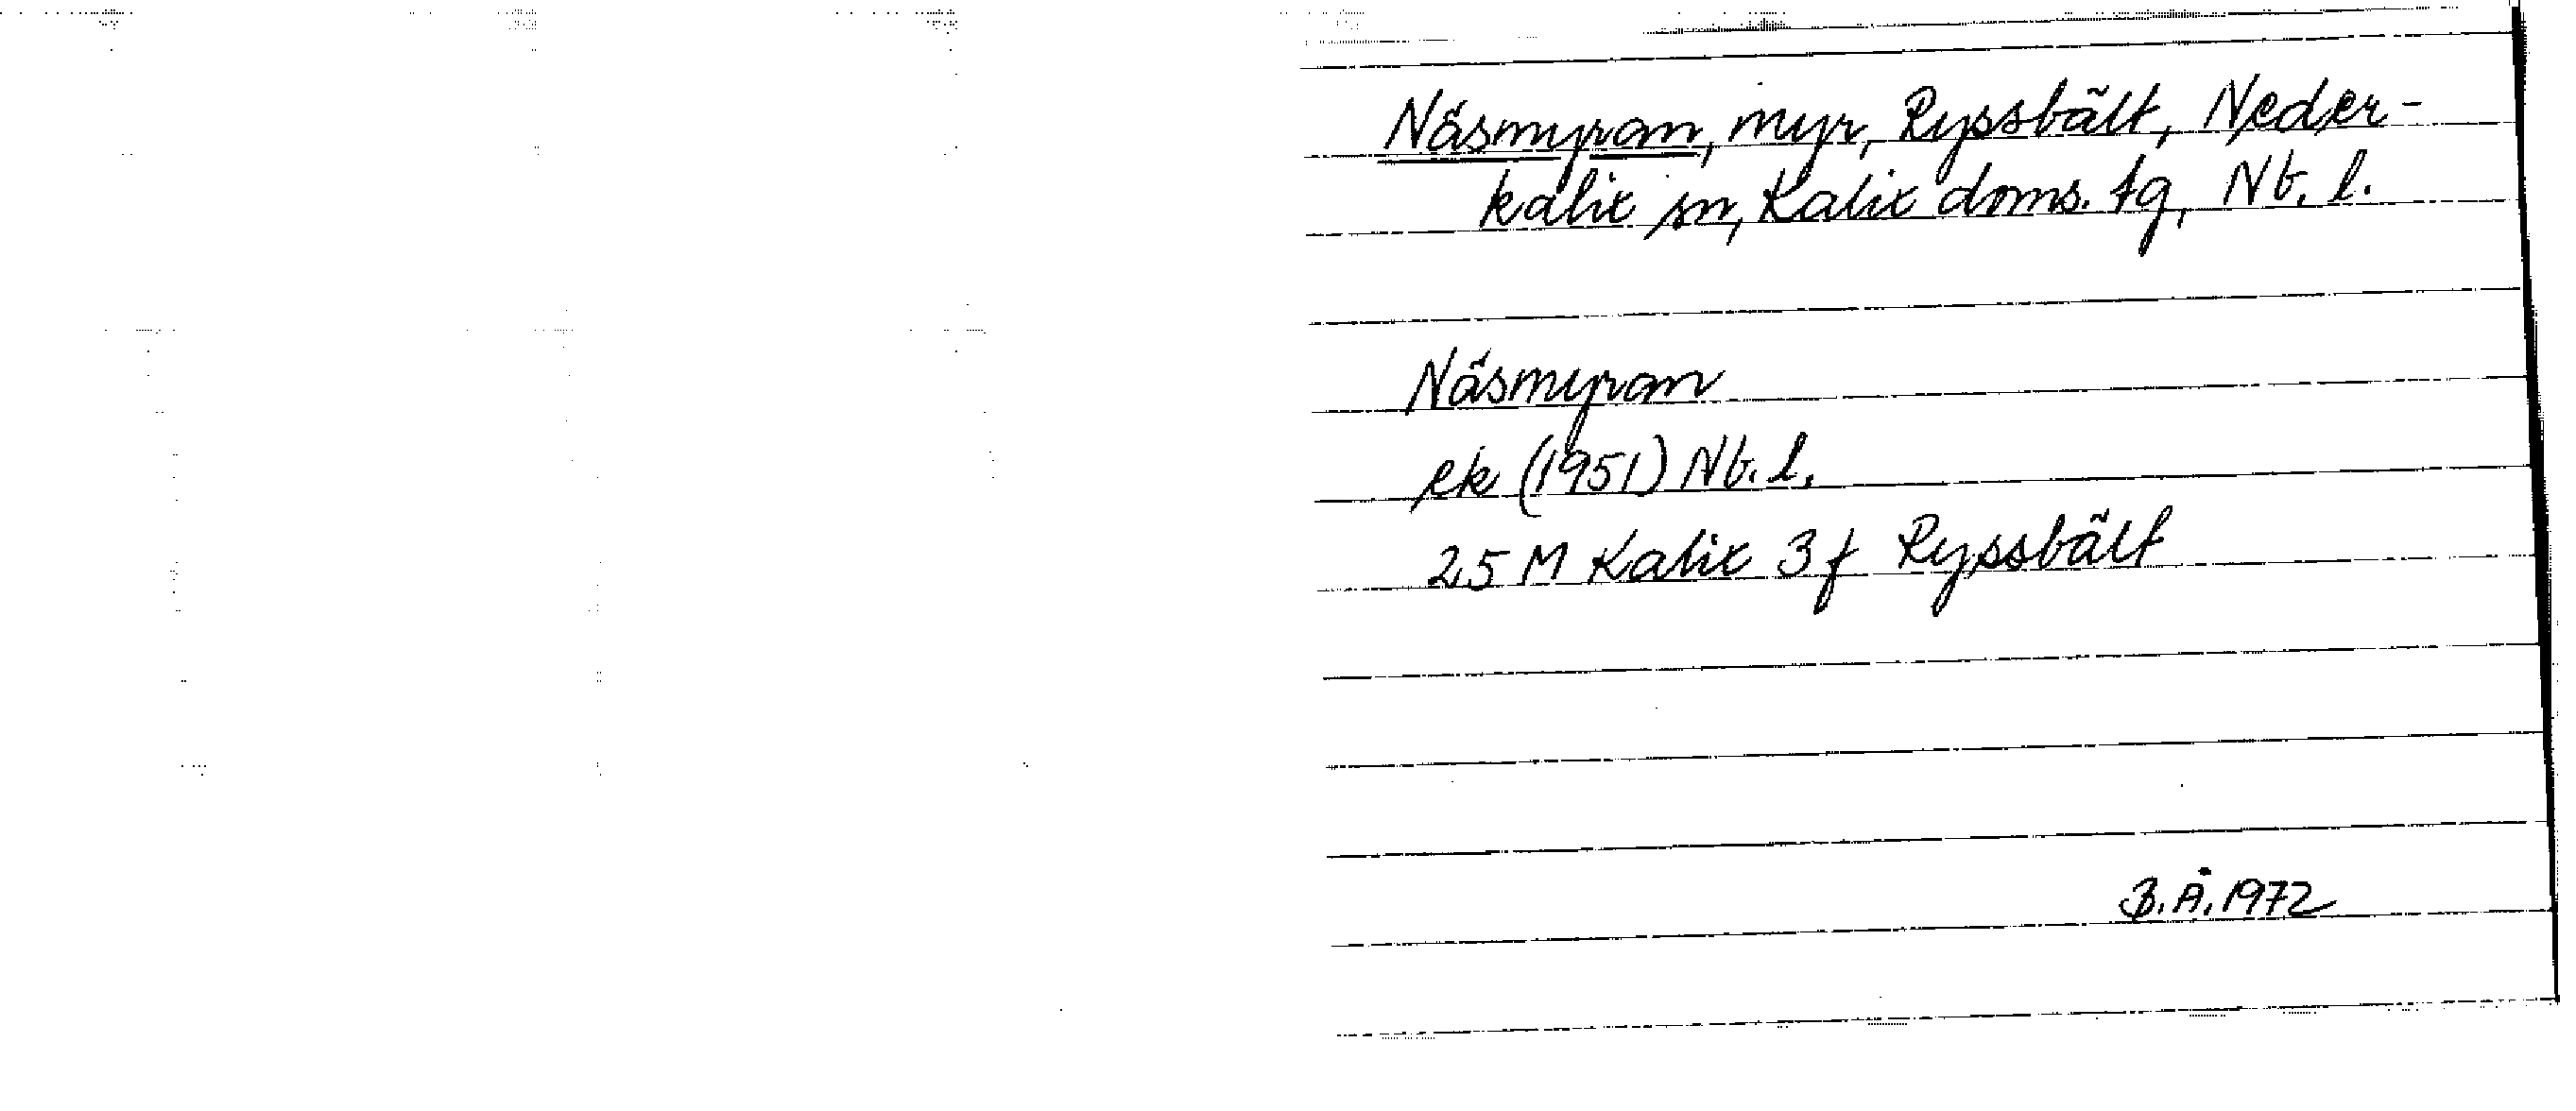 Näsmyran, myr, Ryssbält, Neder-
kalix sn, Kalix doms. tg, Nb. l.
Näsmyran
ek (1951) Nb. l.
25 M Kalix 3 f Ryssbält
B.Å. 1972